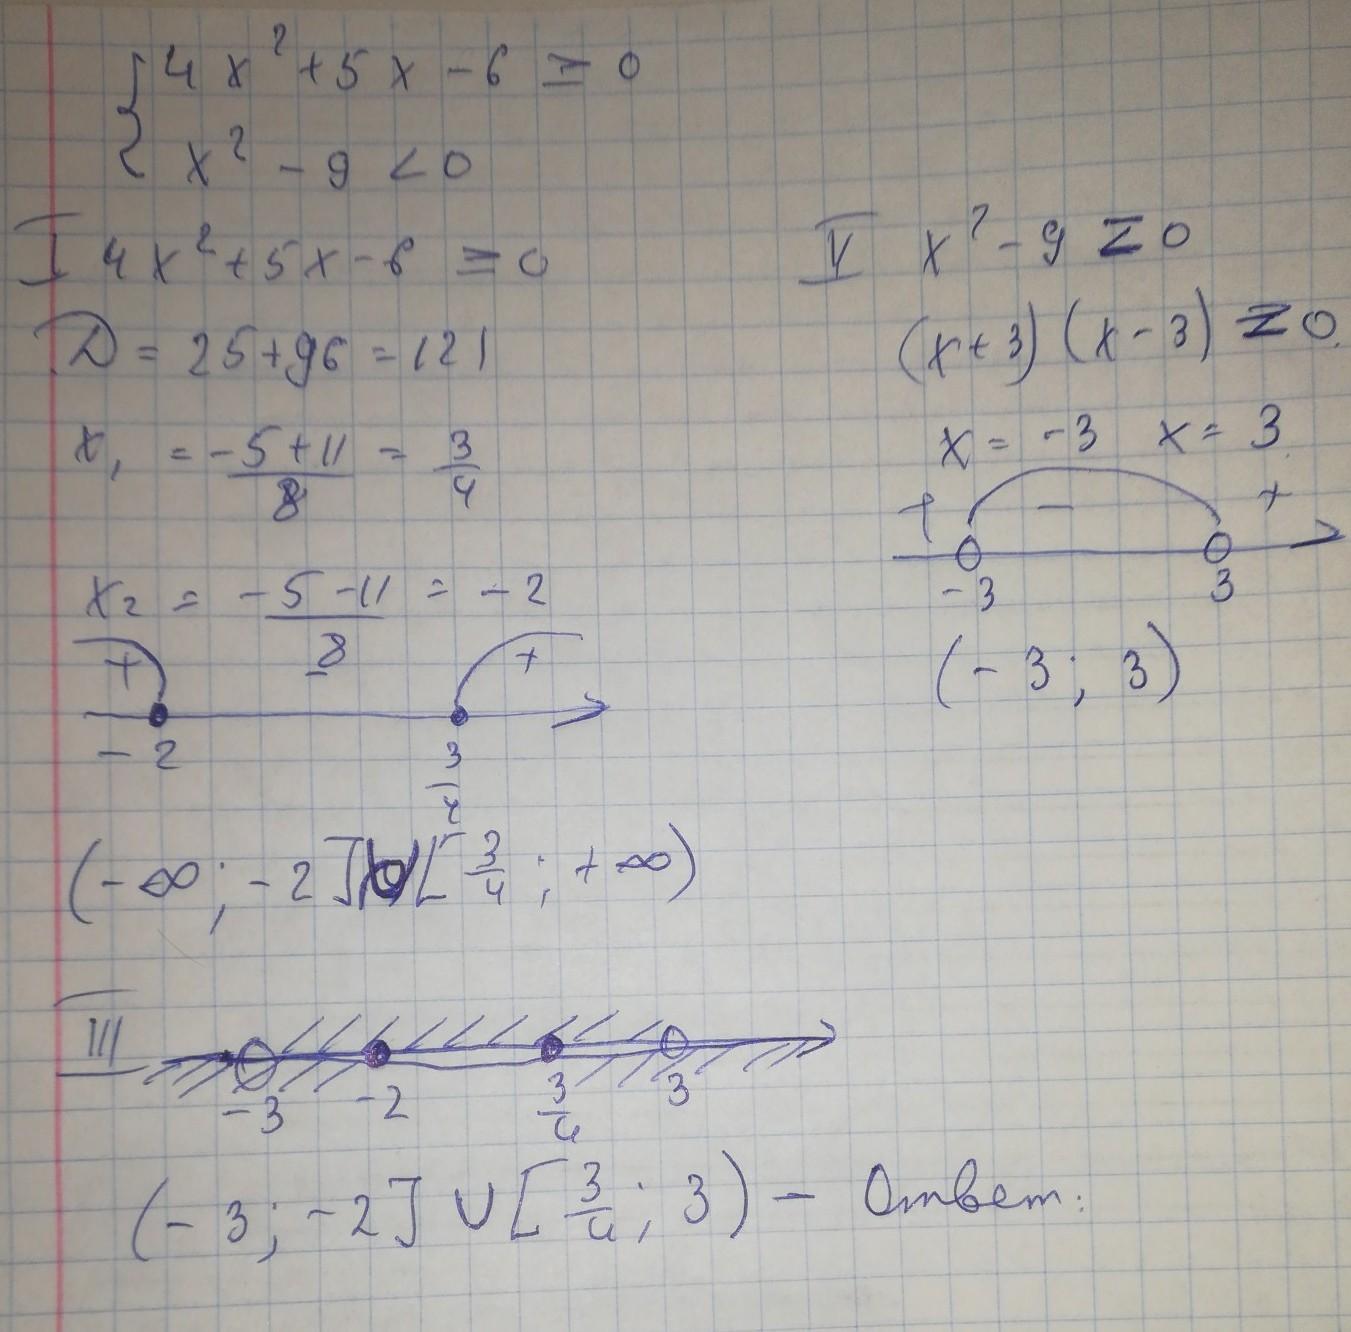 {4x² + 5x - 6 ≥ 0
x² - 9 < 0
I 4x² + 5x - 6 = 0
D = 25 + 96 = 121
x₁ = (-5 + 11)/8 = 3/4
x₂ = (-5 - 11)/8 = -2
+ +
-2 3/4
(-∞; -2] ∪ [3/4; +∞)
x² - 9 = 0
(x + 3)(x - 3) = 0
x = -3 x = 3
+ - +
-3 3
(-3; 3)
III
-3 -2 3/4 3
(-3; -2] ∪ [3/4; 3) - Ответ: